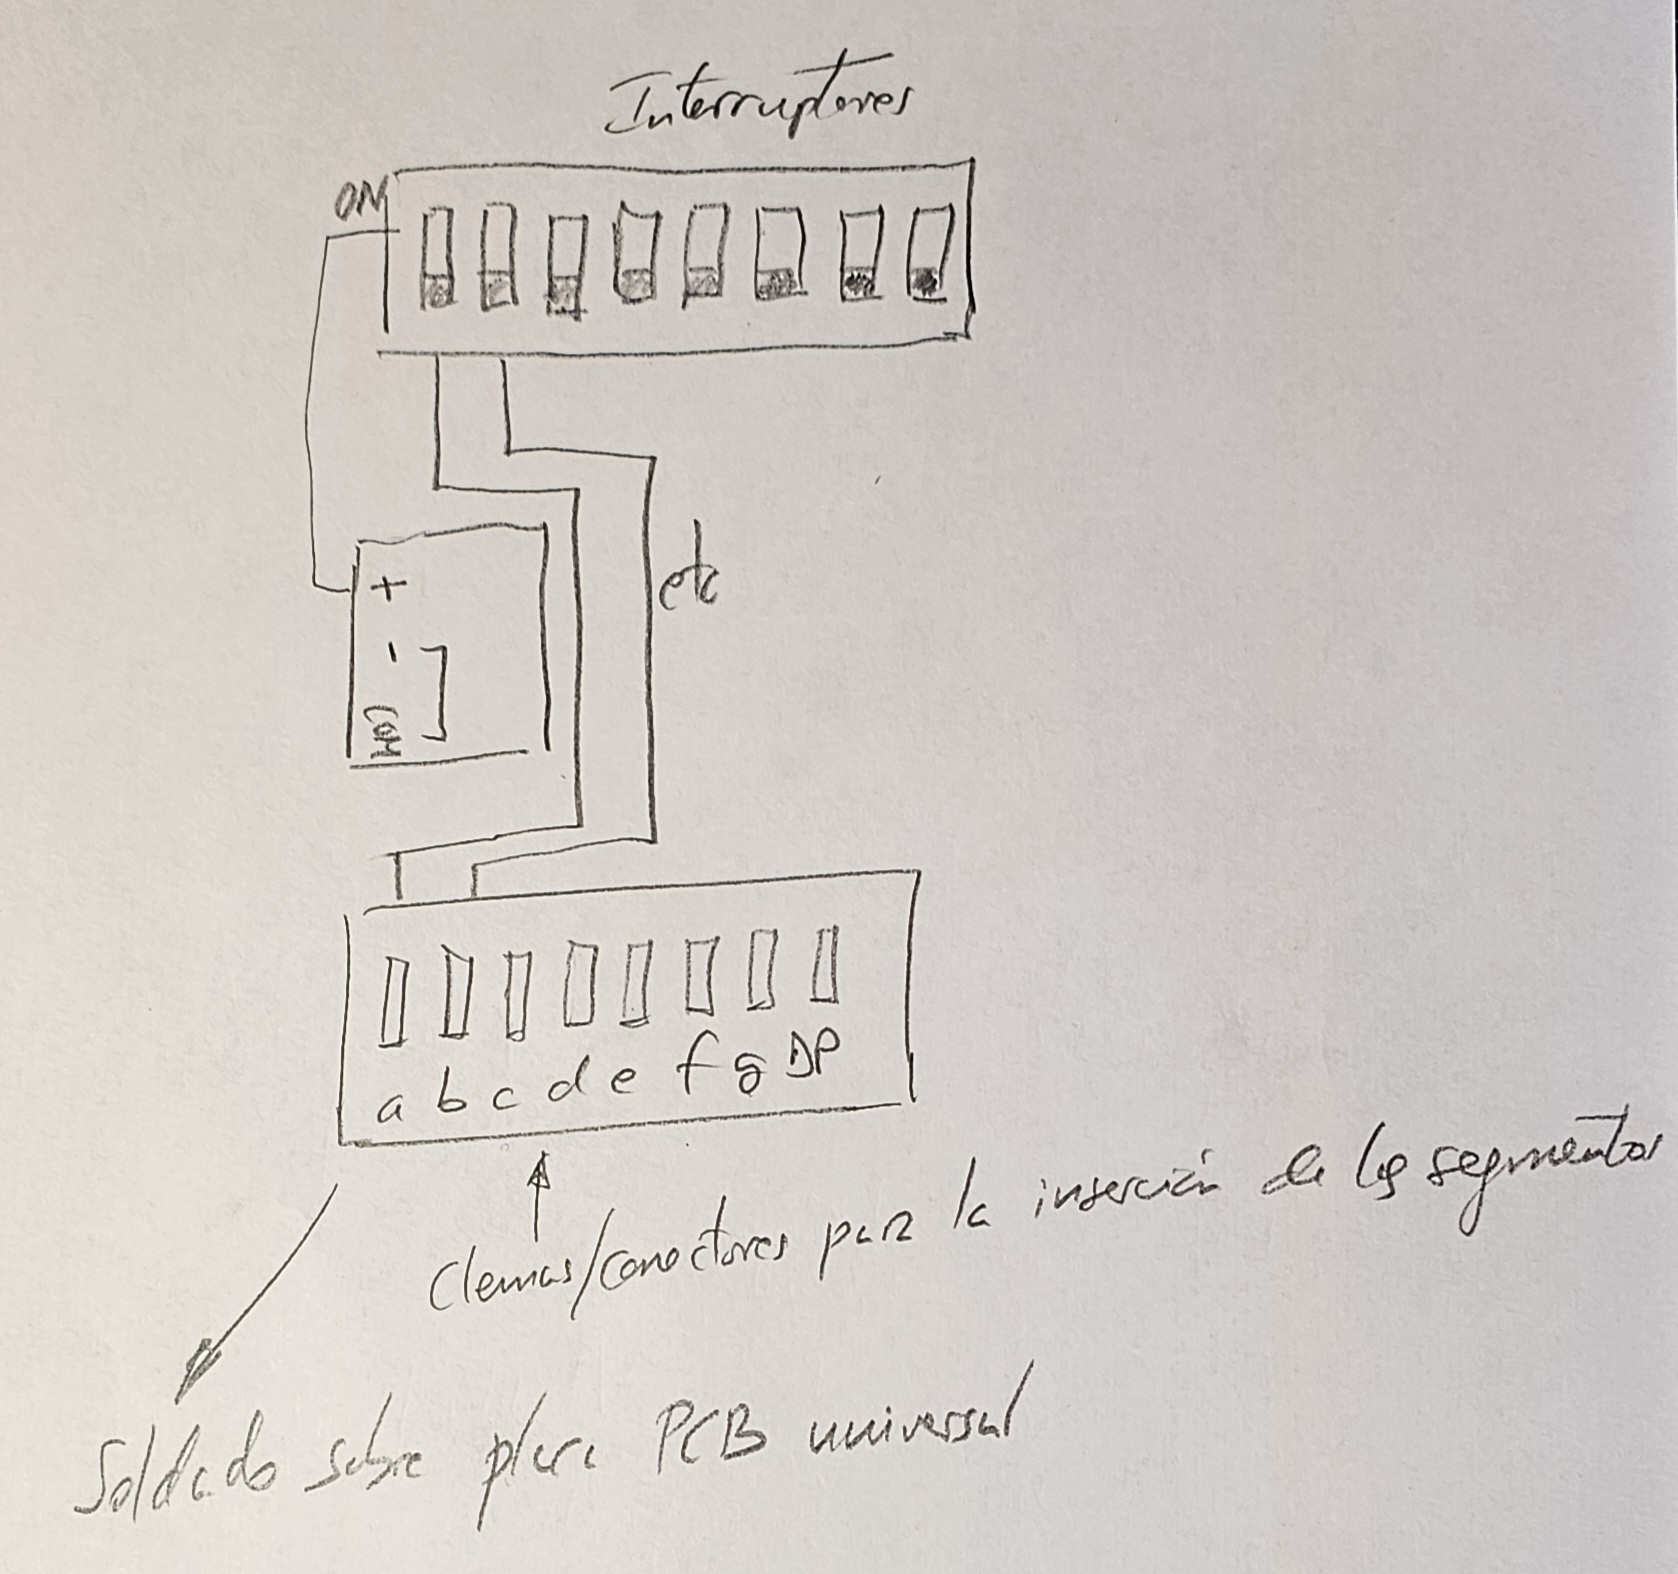 Interruptores
ON
etc
+
-
COM
a b c d e f g DP
Clemas/conectores para la inserción de los segmentos
Soldado sobre placa PCB universal